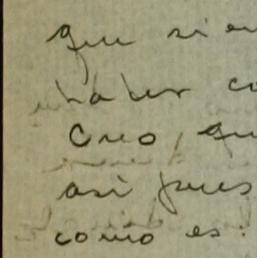 que si en
haber co
Creo, qu
así pues
como es: